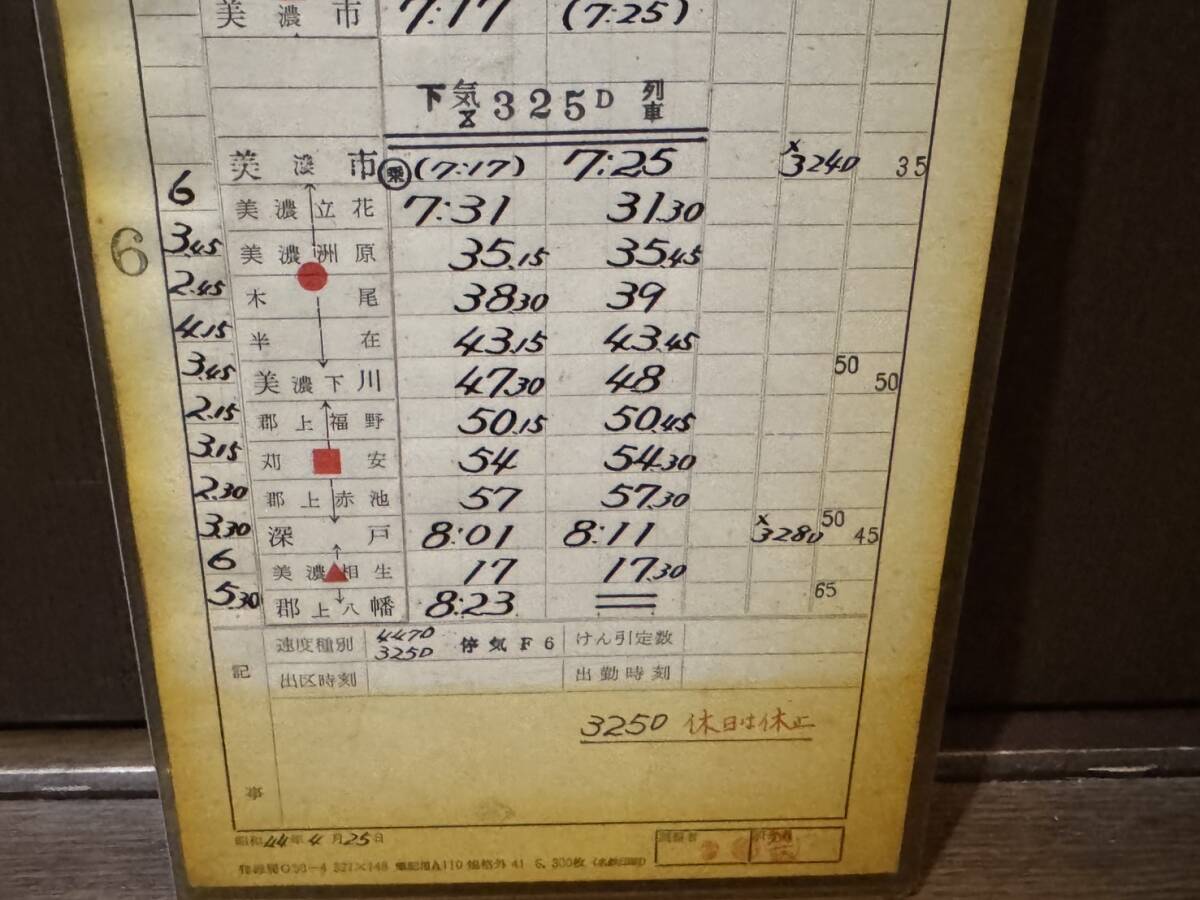 美濃市 7:17 (7:25)
下気325D列車
美濃市 乗 (7:17) 7:25 ×324D 35
6 美濃立花 7:31 31.30
3.45 美濃洲原 35.15 35.45
6
2.45 木尾 38.30 39
4.15 半在 43.15 43.45
3.45 美濃下川 47.30 48 50 50
2.15 郡上福野 50.15 50.45
3.15 苅安 54 54.30
2.30 郡上赤池 57 57.30
3.30 深戸 8:01 8:11 ×328D 50 45
6 美濃相生 17 17.30
5.30 郡上八幡 8:23 65
記事
速度種別 447D 325D 停気F6 けん引定数
出区時刻 出勤時刻
325D 休日は休止
昭和44年4月25日